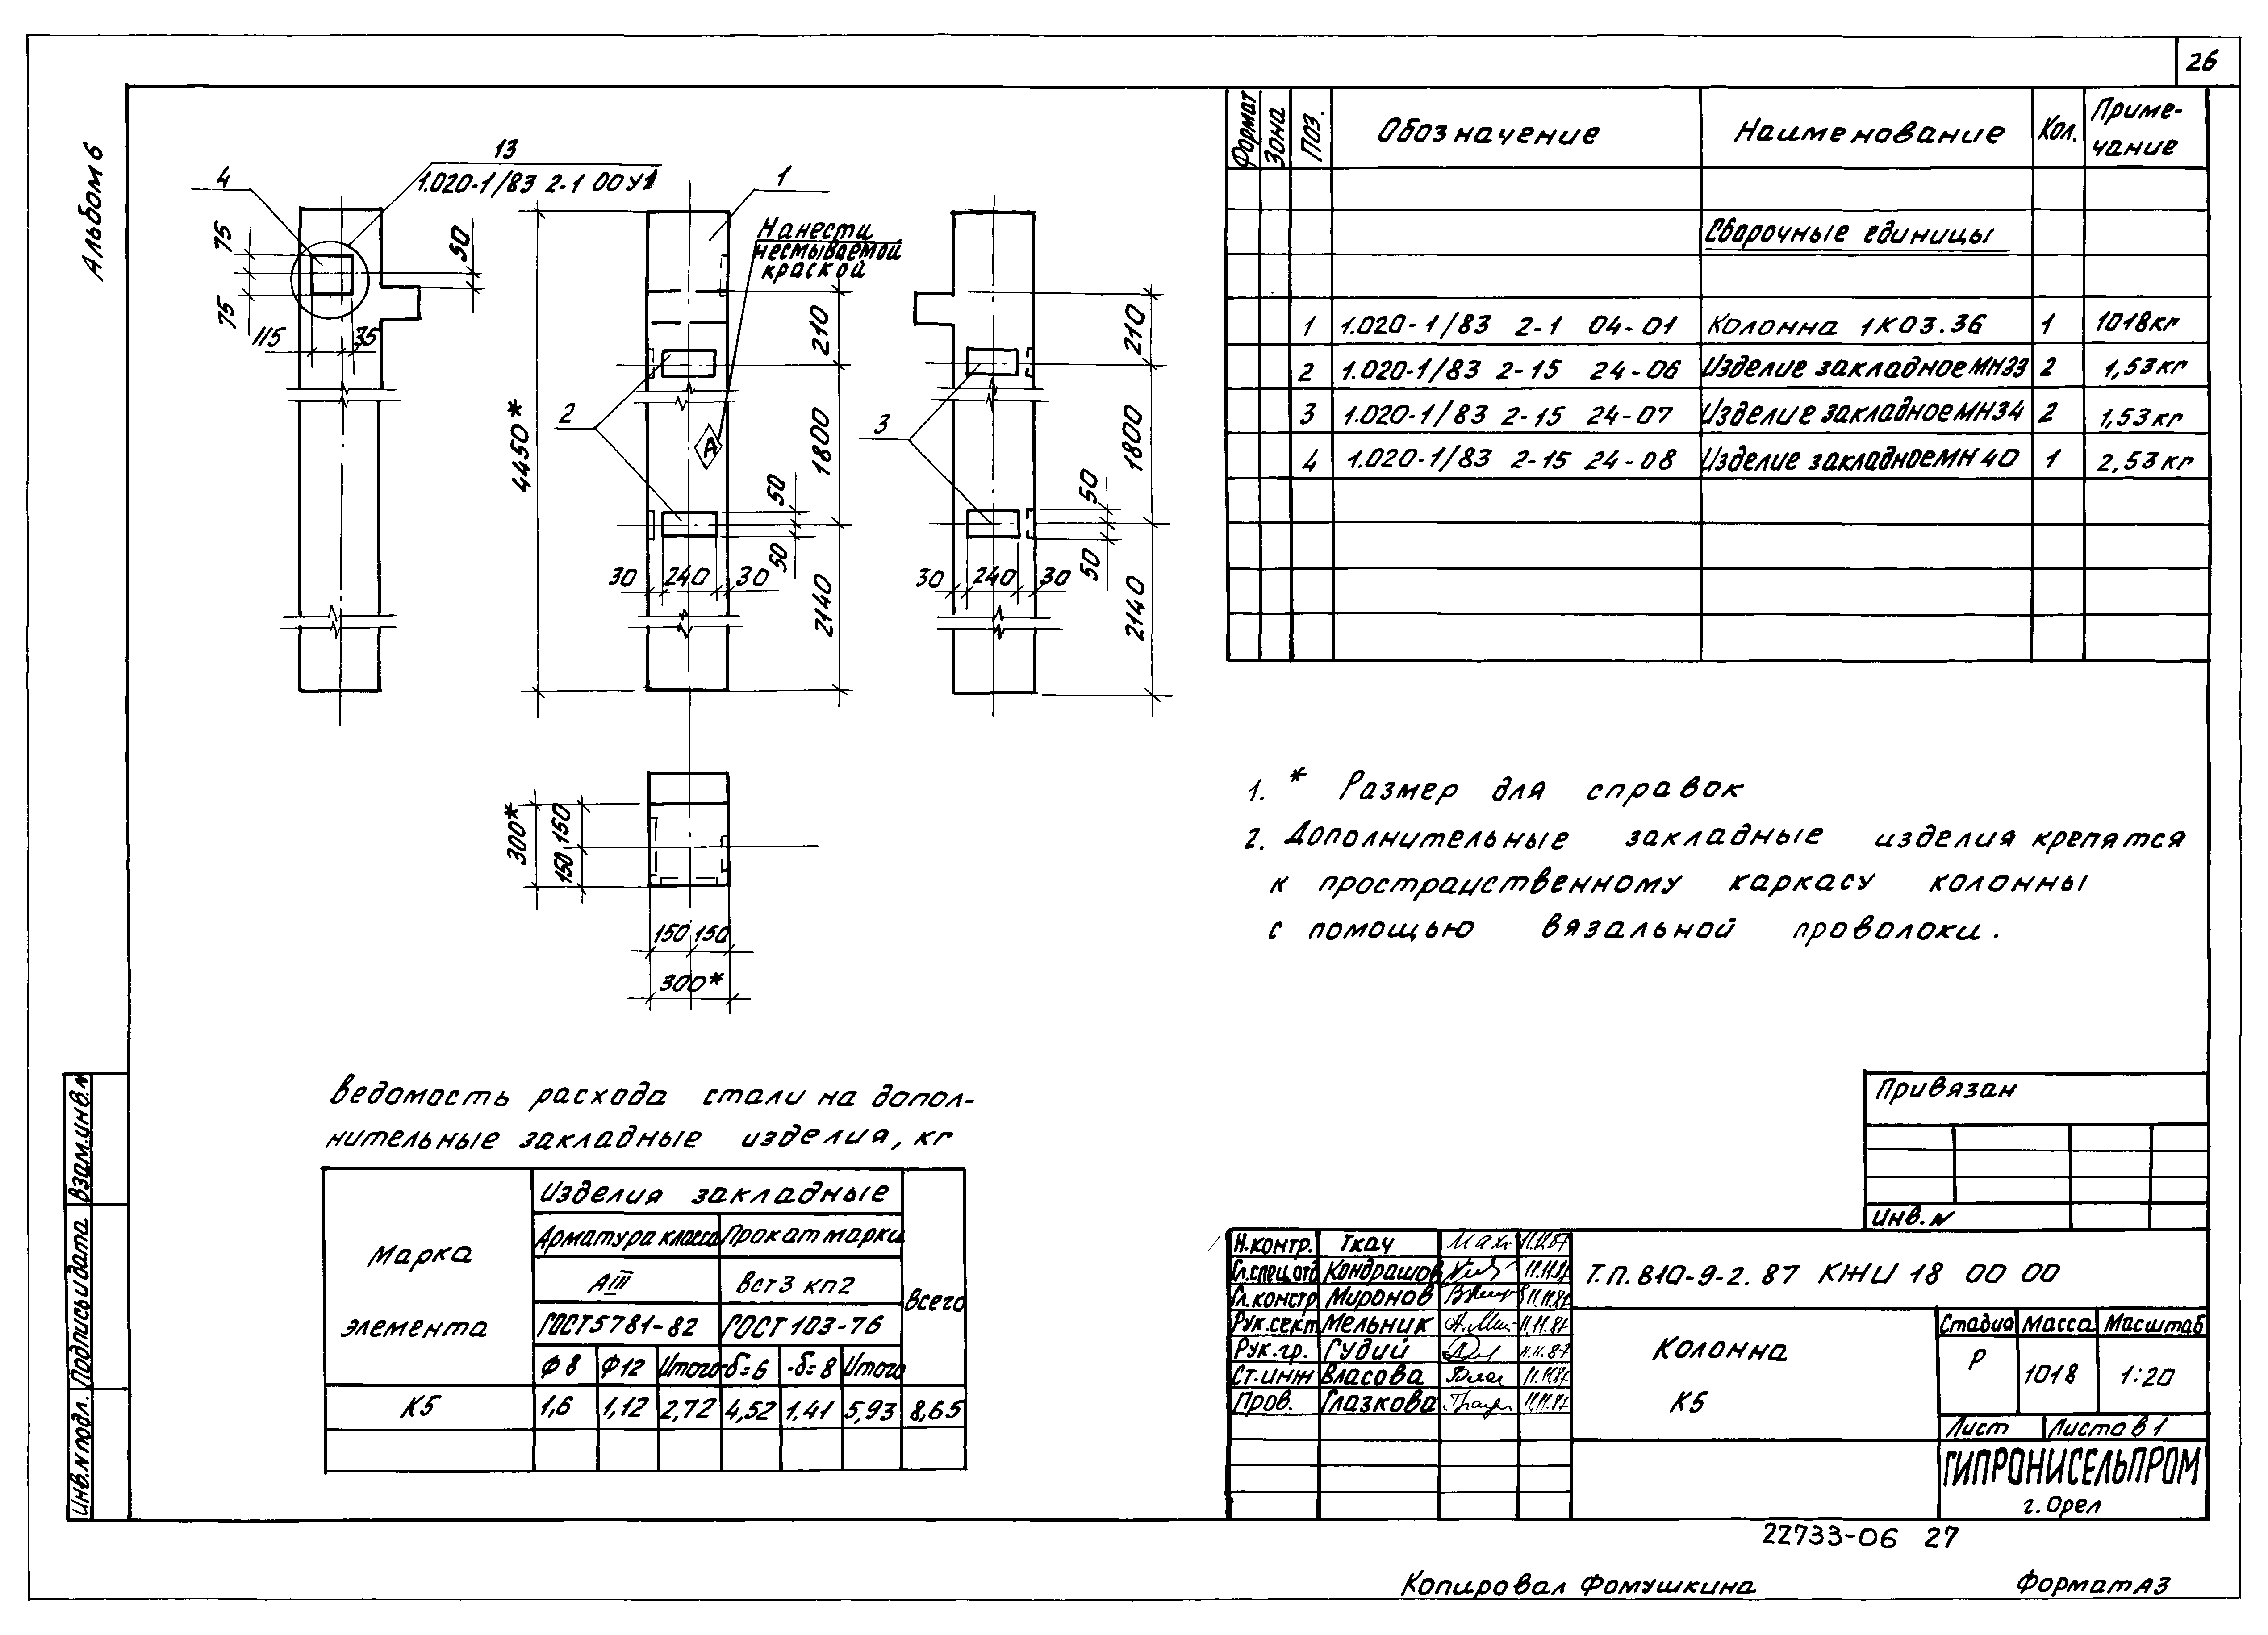 26
Альбом 6
13
1.020-1/83 2-1 00У1
4
75
75
50
115
35
1
Нанести
несмываемой
краской
4450*
2
А
210
1800
2140
50
50
30
240
30
3
210
1800
2140
50
50
30
240
30
300*
150
150
150 150
300*
Формат Зона Поз. Обозначение Наименование Кол. Приме-
чание
Сборочные единицы
1 1.020-1/83 2-1 04-01 Колонна 1К03.36 1 1018кг
2 1.020-1/83 2-15 24-06 Изделие закладное МН33 2 1,53кг
3 1.020-1/83 2-15 24-07 Изделие закладное МН34 2 1,53кг
4 1.020-1/83 2-15 24-08 Изделие закладное МН 40 1 2,53кг
1. * Размер для справок
2. Дополнительные закладные изделия крепятся
к пространственному каркасу колонны
с помощью вязальной проволоки.
Ведомость расхода стали на допол-
нительные закладные изделия, кг
Марка
элемента
Изделия закладные
Всего
Арматура класса Прокат марки
АIII Вст3 кп2
ГОСТ5781-82 ГОСТ103-76
Ф8 Ф12 Итого -δ=6 -δ=8 Итого
К5 1,6 1,12 2,72 4,52 1,41 5,93 8,65
Привязан
Инв.№
Н.контр. Ткач 11.11.87
Гл.спец.отд Кондрашов 11.11.87
Гл.констр. Миронов 11.11.87
Рук.сект. Мельник 11.11.87
Рук.гр. Гудий 11.11.87
Ст.инж Власова 11.11.87
Пров. Глазкова 11.11.87
Т.П.810-9-2.87 КЖИ 18 00 00
Колонна
К5
Стадия Масса Масштаб
Р 1018 1:20
Лист Листов 1
ГИПРОНИСЕЛЬПРОМ
г.Орел
Взам.инв.№
Подпись и дата
Инв.№ подл.
22733-06 27
Копировал Фомушкина
Формат А3